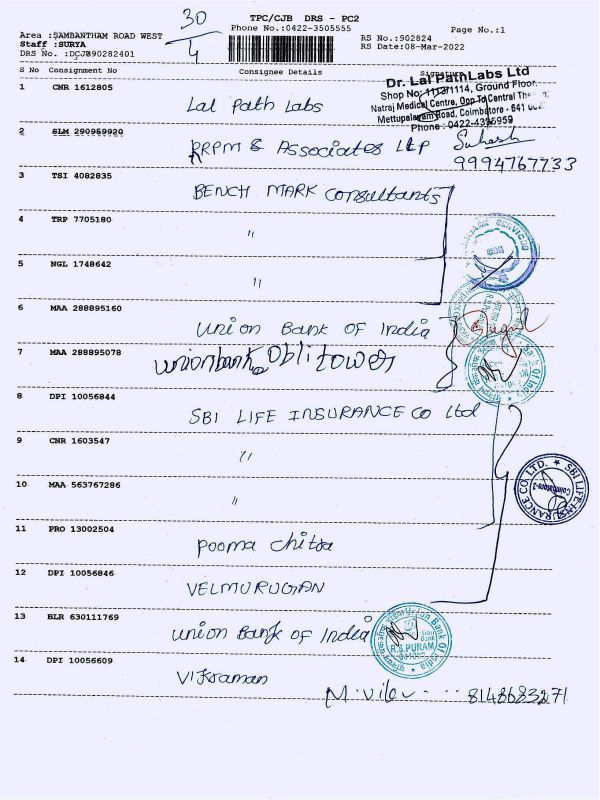 30
4
TPC/CJB DRS - PC2
Phone No.:0422-3505555
Page No.:1
Area :SAMBANTHAM ROAD WEST
Staff :SURYA
DRS No. :DCJB90282401
RS No.:902824
RS Date:08-Mar-2022
S No Consignment No Consignee Details Signature
Dr. Lal PathLabs Ltd
Shop No: 1112/1114, Ground Floor
Natraj Medical Centre, Opp To Central
Mettupalayam Road, Coimbatore - 641
Phone : 0422-4395959
1 CNR 1612805 Lal Path Labs
2 SLM 290959920 RRPM & Associates LLP Sukesh
9994767733
3 TSI 4082835 BENCH MARK Consultants
4 TRP 7705180 "
5 NGL 1748642 "
6 MAA 288895160 Union Bank OF India
7 MAA 288895078 unionbank Obli tower
8 DPI 10056844 SBI LIFE INSURANCE CO Ltd
9 CNR 1603547 "
10 MAA 563767286 "
SBI LIFE INSURANCE CO. LTD.
Coimbatore-2
11 PRO 13002504 Pooma Chitra
12 DPI 10056846 VELMURUGAN
13 BLR 630111769 union Bank OF India
Union Bank Of India
R.S.PURAM
14 DPI 10056609 Vikraman
8148683271